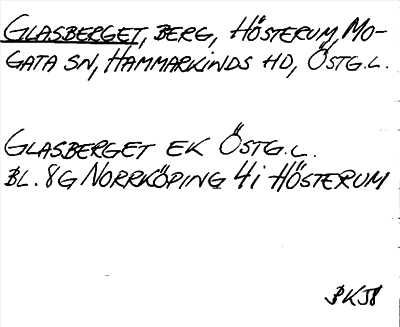 GLASBERGET, BERG, HÖSTERUM, MO-
GATA SN, HAMMARKINDS HD, ÖSTG.L.
GLASBERGET EK ÖSTG.L.
BL. 8G NORRKÖPING 4i HÖSTERUM